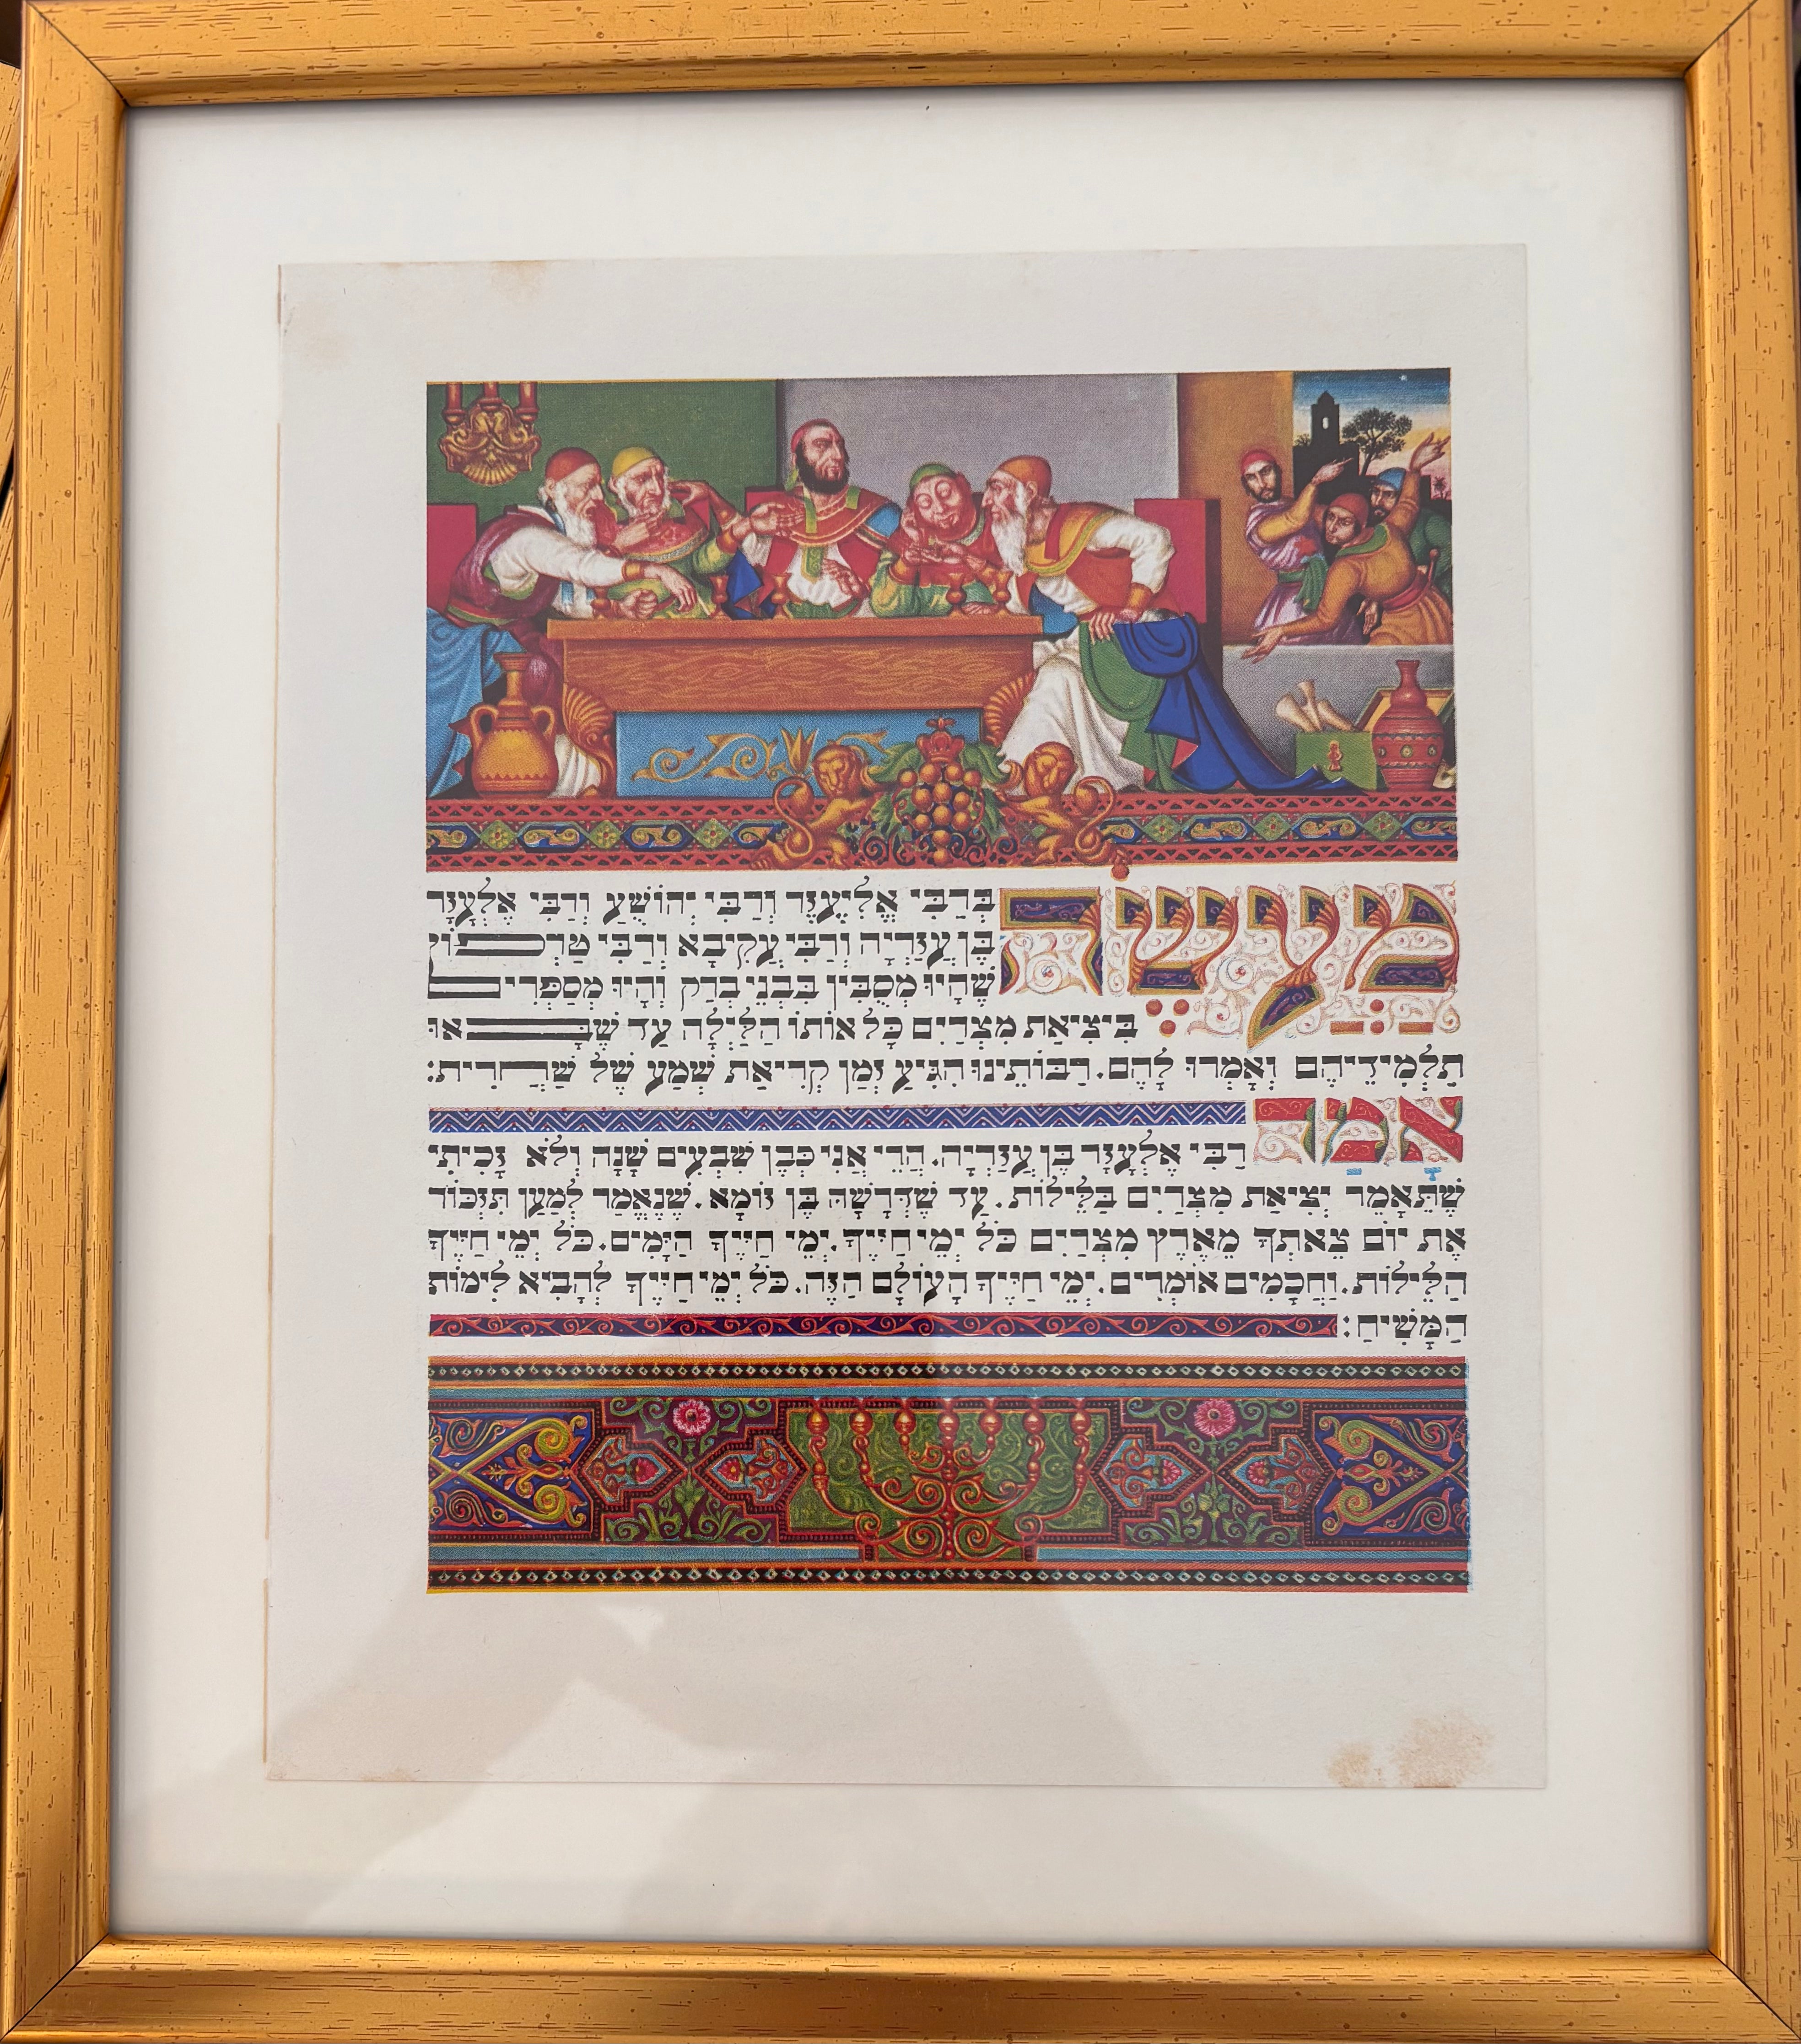 מַעֲשֶׂה בְּרַבִּי אֱלִיעֶזֶר וְרַבִּי יְהוֹשֻׁעַ וְרַבִּי אֶלְעָזָר
בֶּן עֲזַרְיָה וְרַבִּי עֲקִיבָא וְרַבִּי טַרְפוֹן
שֶׁהָיוּ מְסֻבִּין בִּבְנֵי בְרַק וְהָיוּ מְסַפְּרִים
בִּיצִיאַת מִצְרַיִם כָּל אוֹתוֹ הַלַּיְלָה עַד שֶׁבָּאוּ
תַלְמִידֵיהֶם וְאָמְרוּ לָהֶם. רַבּוֹתֵינוּ הִגִּיעַ זְמַן קְרִיאַת שְׁמַע שֶׁל שַׁחֲרִית:
אָמַר
רַבִּי אֶלְעָזָר בֶּן עֲזַרְיָה. הֲרֵי אֲנִי כְּבֶן שִׁבְעִים שָׁנָה וְלֹא זָכִיתִי
שֶׁתֵּאָמֵר יְצִיאַת מִצְרַיִם בַּלֵּילוֹת. עַד שֶׁדְּרָשָׁהּ בֶּן זוֹמָא. שֶׁנֶּאֱמַר לְמַעַן תִּזְכּוֹר
אֶת יוֹם צֵאתְךָ מֵאֶרֶץ מִצְרַיִם כֹּל יְמֵי חַיֶּיךָ. יְמֵי חַיֶּיךָ הַיָּמִים. כֹּל יְמֵי חַיֶּיךָ
הַלֵּילוֹת. וַחֲכָמִים אוֹמְרִים. יְמֵי חַיֶּיךָ הָעוֹלָם הַזֶּה. כֹּל יְמֵי חַיֶּיךָ לְהָבִיא לִימוֹת
הַמָּשִׁיחַ: